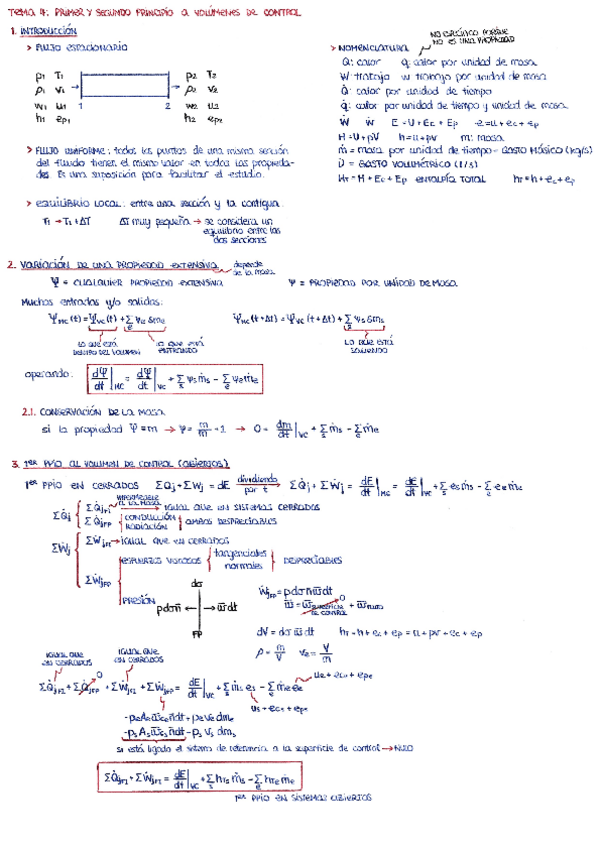 TEMA 4: PRIMER Y SEGUNDO PRINCIPIO A VOLÚMENES DE CONTROL
1. INTRODUCCIÓN
> FLUJO ESTACIONARIO
p1 T1
ρ1 v1
w1 u1
h1 ep1
1 2
p2 T2
ρ2 v2
w2 u2
h2 ep2
> FLUJO UNIFORME: todos los puntos de una misma sección
del fluido tienen el mismo valor en todas las propieda-
des. Es una suposición para facilitar el estudio.
> EQUILIBRIO LOCAL: entre una sección y la contigua.
T1 → T1 + ΔT ΔT muy pequeña → se considera un
equilibrio entre las
dos secciones
> NOMENCLATURA
NO ES UNA PROPIEDAD
Q: calor q: calor por unidad de masa
W: trabajo w: trabajo por unidad de masa
Q̇: calor por unidad de tiempo
q̇: calor por unidad de tiempo y unidad de masa
Ẇ ẇ E = U + Ec + Ep e = u + ec + ep
H = U + pV h = u + pv m: masa
ṁ = masa por unidad de tiempo - GASTO MÁSICO (kg/s)
V̇ = GASTO VOLUMÉTRICO (l/s)
HT = H + Ec + Ep ENTALPÍA TOTAL hT = h + ec + ep
2. VARIACIÓN DE UNA PROPIEDAD EXTENSIVA
depende
de la masa
Ψ = CUALQUIER PROPIEDAD EXTENSIVA ψ = PROPIEDAD POR UNIDAD DE MASA
Muchas entradas y/o salidas:
ΨMC(t) = ΨVC(t) + Σe ψe δme ΨMC(t+Δt) = ΨVC(t+Δt) + Σs ψs δms
LO QUE ESTÁ
DENTRO DEL VOLUMEN
LO QUE ESTÁ
ENTRANDO
LO QUE ESTÁ
SALIENDO
operando: dΨ/dt|MC = dΨ/dt|VC + Σs ψs ṁs - Σe ψe ṁe
2.1. CONSERVACIÓN DE LA MASA
si la propiedad Ψ = m → ψ = m/m = 1 → 0 = dm/dt|VC + Σs ṁs - Σe ṁe
3. 1ER PPIO AL VOLUMEN DE CONTROL (ABIERTOS)
1ER PPIO EN CERRADOS ΣQj + ΣWj = dE dividiendo por t ΣQ̇j + ΣẆj = dE/dt|MC = dE/dt|VC + Σs es ṁs - Σe ee ṁe
ΣQ̇j
ΣQ̇jFI → IGUAL QUE EN SISTEMAS CERRADOS
ΣQ̇jFP CONDUCCIÓN
RADIACIÓN
AMBOS DESPRECIABLES
ΣẆj
ΣẆjFI → IGUAL QUE EN CERRADOS
ΣẆjFP
ESFUERZOS VISCOSOS
tangenciales
normales
DESPRECIABLES
PRESIÓN
dσ
pdσn̄ ← → w̄dt
FP
ẆjFP = p dσ n̄ w̄ dt
w̄ = w̄ superficie de control + w̄ fluido
0
dV = dσ w̄ dt hT = h + ec + ep = u + pv + ec + ep
ρ = m/V ve = V/m
IGUAL QUE
EN CERRADOS
IGUAL QUE
EN CERRADOS
0
ΣQ̇jFI + ΣQ̇jFP + ΣẆjFI + ΣẆjFP = dE/dt|VC + Σs ṁs es - Σe ṁe ee
ue + ece + epe
us + ecs + eps
-peAew̄cen̄dt + pe ve dme
-psAsw̄csn̄dt - ps vs dms
si está ligado el sistema de referencia a la superficie de control → NULO
ΣQ̇jFI + ΣẆjFI = dE/dt|VC + Σs hTs ṁs - Σe hTe ṁe
1ER PPIO EN SISTEMAS ABIERTOS